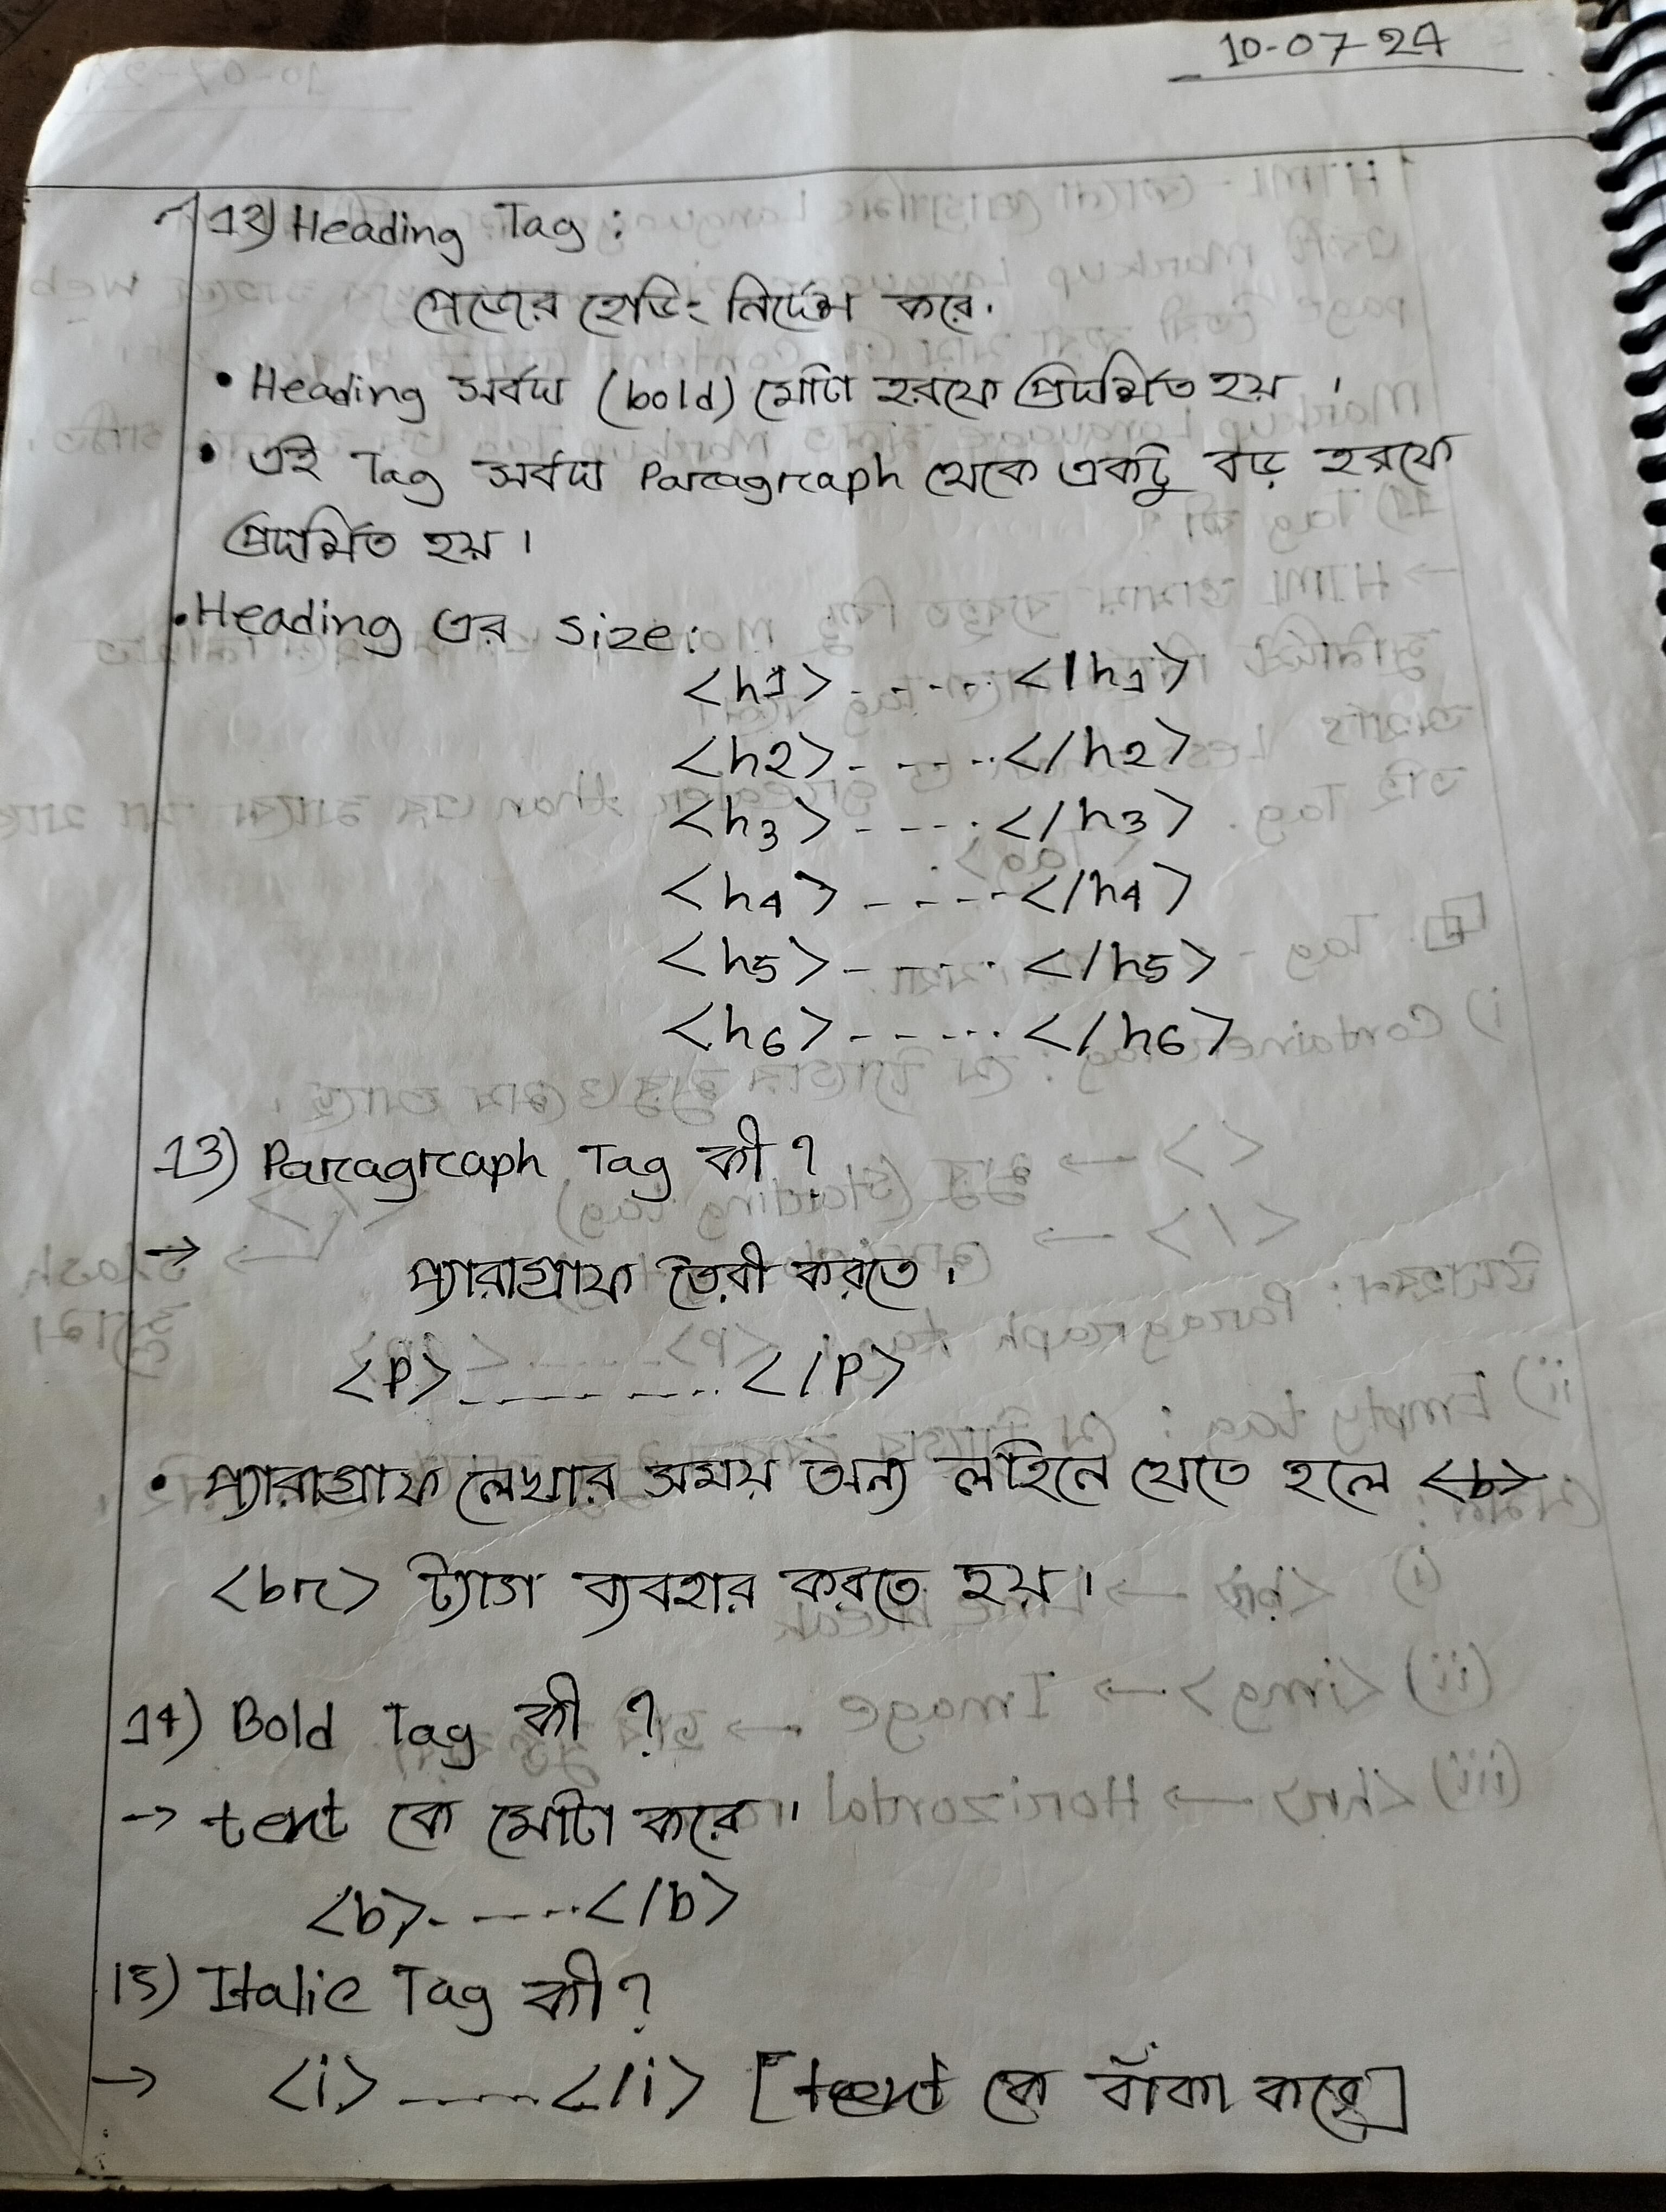 10-07-24
12) Heading Tag:
পেজের হেডিং নির্দেশ করে.
• Heading সর্বদা (bold) মোটা হরফে প্রদর্শিত হয় ।
• এই Tag সর্বদা Paragraph থেকে একটু বড় হরফে
প্রদর্শিত হয় ।
• Heading এর size:
<h1> - - - - - </h1>
<h2> - - - - - </h2>
<h3> - - - - </h3>
<h4> - - - - - </h4>
<h5> - - - - - </h5>
<h6> - - - - - </h6>
13) Paragraph Tag কী ?
→
প্যারাগ্রাফ তৈরী করতে ।
<P> - - - - - - </P>
• প্যারাগ্রাফ লেখার সময় অন্য লাইনে যেতে হলে <b>
<br> ট্যাগ ব্যবহার করতে হয় ।
14) Bold Tag কী ?
→ text কে মোটা করে ।
<b> - - - - - </b>
15) Italic Tag কী ?
→ <i> - - - - - </i> [text কে বাঁকা করে]